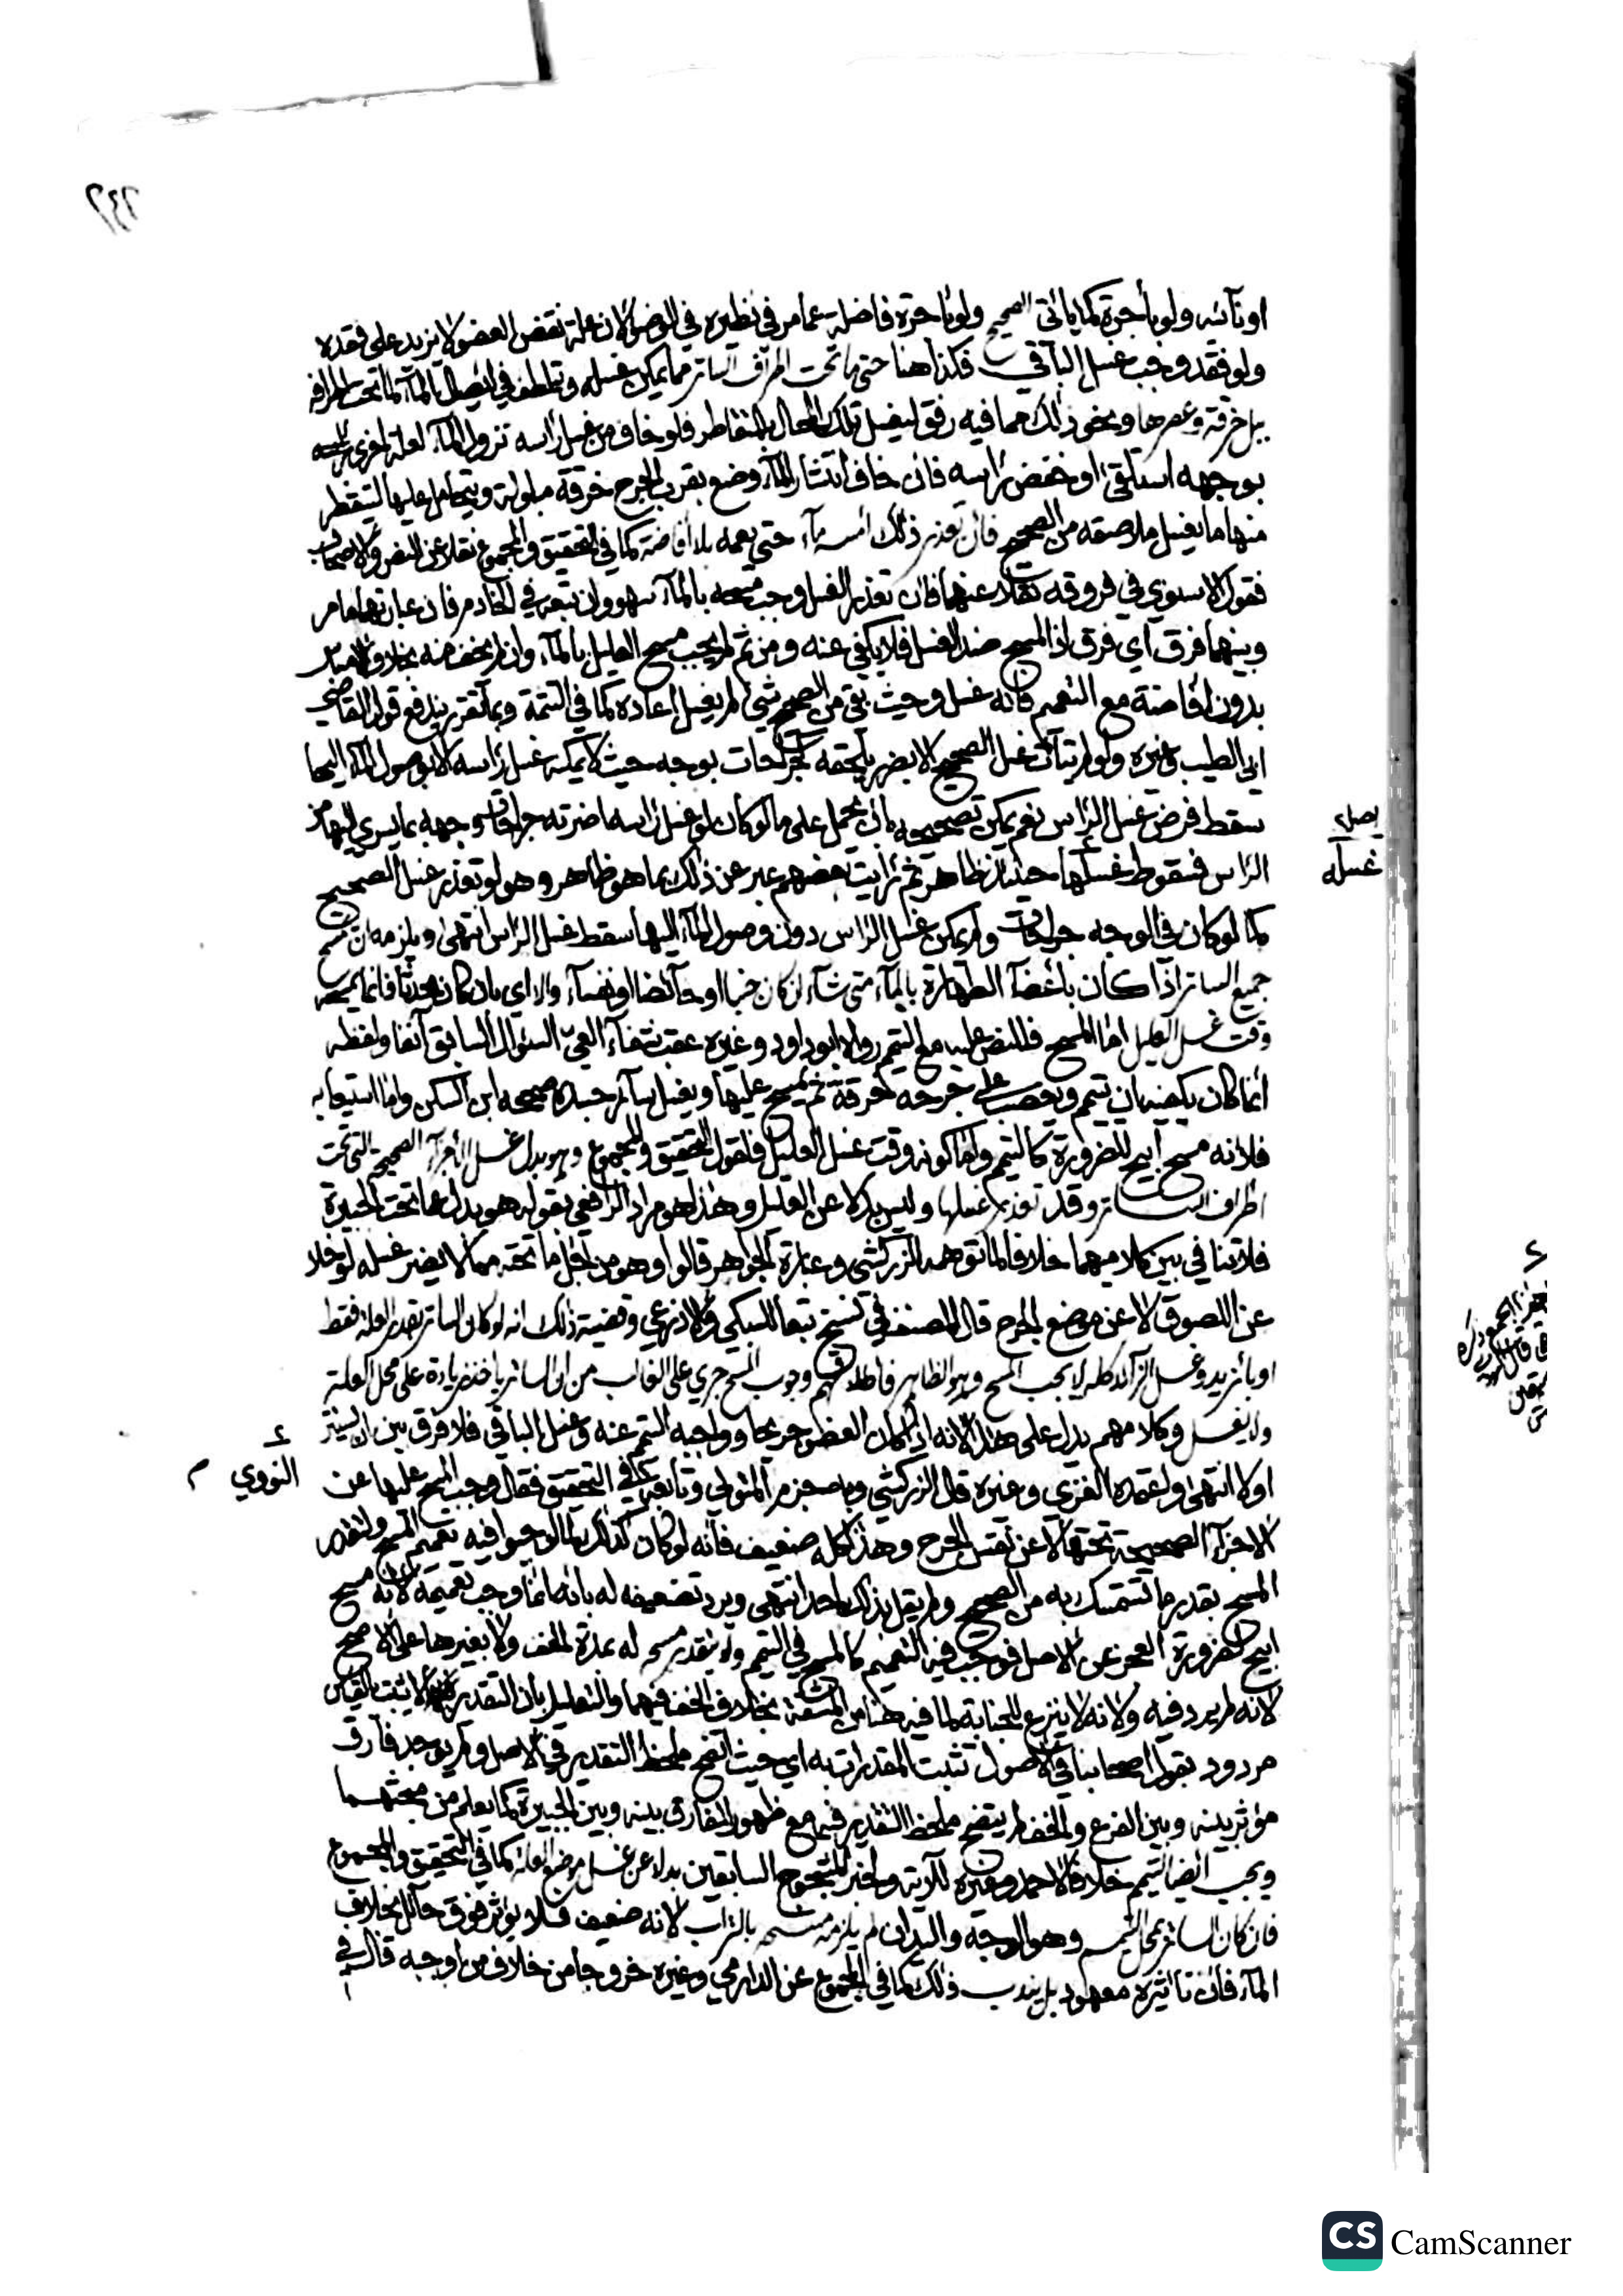 ٢٤٢
او نائبه ولو بأجرة كما يأتي الصحيح ولو بأجرة فاضلة عما مر في نظيره في الوضوء لان علة نقض العضو لا تزيد على فقده
ولو فقد وجب غسل الباقي فكذا هنا حتى ما تحت اطراف الساتر مما يمكن غسله وتلطف في ايصال الماء لما تحت اطرافه
ببل خرقة وعصرها ونحو ذلك مما فيه رفق ليغسل تلك المحال بالمتقاطر فلو خاف من غسل رأسه نزول الماء لعلة اخرى
بوجهه استلقى او خفض رأسه فان خاف انتشار الماء وضع بقرب الجرح خرقة مبلولة ويتحامل عليها لتقطر
منها ما يغسل ملاصقه من الصحيح فان تعذر ذلك امسه ماء حتى يعمه بلا افاضة كما في التحقيق والمجموع نقلا عن النص والاصحاب
فقول الاسنوي في فروقه نقلا عنهما فان تعذر الغسل وجب مسحه بالماء سهو وان تبعه في الخادم فان عبارتهما ما مر
وبينهما فرق اي فرق اذ المسح ضد الغسل فلا يكفي عنه ومن ثم لم يجب مسح العليل بالماء وان لم يخف منه بخلاف الامساس
بدون افاضة مع التعميم فانه غسل وحيث بقي من الصحيح شيء لم يغسل اعاده كما في التتمة وبما تقرر يندفع قول القاضي
ابي الطيب وغيره ولو لم يتأت غسل الصحيح الا بضرر يلحقه كجراحات بوجهه حيث لا يمكنه غسل رأسه الا بوصول الماء اليها
سقط فرض غسل الرأس نعم يمكن تصحيحه بان يحمل على ما لو كان لو غسل رأسه اضر به جراحات وجهه بما يسري اليها من
الرأس فسقوط غسلها حينئذ ظاهر ثم رأيت بعضهم عبر عن ذلك بما هو ظاهر وهو لو تعذر غسل الصحيح
كما لو كان في الوجه جراحات ولم يمكن غسل الرأس دون وصول الماء اليها سقط غسل الرأس انتهى ويلزمه ان يمسح
جميع الساتر اذا كان باعضاء الطهارة بالماء متى شاء ان كان جنبا او حائضا او نفساء والا اي بان كان محدثا فانما يمسحه
وقت غسل العليل اما المسح فللنص عليه مع التيمم رواه ابوداود وغيره عقب شفاء العي السؤال السابق آنفا ولفظه
انما كان يكفيه ان يتيمم ويعصب على جرحه خرقة ثم يمسح عليها ويغسل سائر جسده صححه ابن السكن واما استيعابه
فلانه مسح ابيح للضرورة كالتيمم واما كونه وقت غسل العليل فلقول التحقيق والمجموع وهو بدل غسل الاجزاء الصحيحة التي تحت
اطراف الساتر وقد تعذر غسلها وليس بدلا عن العليل وهذا هو مراد الرافعي بقوله هو بدل عما تحت الجبيرة
فلا تنافي بين كلاميهما خلافا لما توهمه الزركشي وعبارة الجواهر قالوا وهو من اجل ما تحته مما لا يضر غسله لو خلا
عن اللصوق لا عن موضع الجرح قال المصنف في نسخ تبعا للسبكي والاذرعي وقضية ذلك انه لو كان الساتر بقدر العلة فقط
او بازيد وغسل الزائد كله لا يجب المسح وهو الظاهر فاطلاقهم وجوب المسح جرى على الغالب من ان الساتر ياخذ زيادة على محل العلة
ولا يغسل وكلامهم يدل على هذا لانه اذا كان العضو جريحا وواجبه التيمم عنه وغسل الباقي فلا فرق بين ان يستتر
او لا انتهى واعتمده الغزي وغيره قال الزركشي وبه جزم المتولي وتابعه في التحقيق فقال وجب المسح عليها عن
الاجزاء الصحيحة تحتها لا عن نفس الجرح وهذا كله ضعيف فانه لو كان كذلك لما اوجبوا فيه تعميم المسح ولتقدر
المسح بقدر ما تستمسك به من الصحيح ولم يقل بذلك احد انتهى ويرد تضعيفه له بانه انما وجب تعميمه لانه مسح
ابيح لضرورة العجز عن الاصل فوجب فيه التعميم كالمسح في التيمم ولا يتقدر مسحه له بمدة الخف ولا بغيرها على الاصح
لانه لم يرد فيه ولانه لا ينزع للجنابة لما فيه هنا من المشقة بخلاف الخف فيهما والتعليل بان التقدير لا يثبت بالقياس
مردود بقول اصحابنا في الاصول تثبت المقدرات به اي حيث اتضح ملحظ التقدير في الاصل ولم يوجد فارق
مؤثر بينه وبين الفرع والخف لم يتضح ملحظ التقدير فيه مع ظهور الفارق بينه وبين الجبيرة كما يعلم من مبحثهما
ويجب ايضا التيمم خلافا لاحمد وغيره للآية ولخبر المشجوج السابقين بدلا عن غسل موضع العلة كما في التحقيق والمجموع
فان كان الساتر بمحل التيمم وهو الوجه واليدان لم يلزمه مسحه بالتراب لانه ضعيف فلا يؤثر فوق حائل بخلاف
الماء فان تأثيره معهود بل يندب ذلك كما في المجموع عن الدارمي وغيره خروجا من خلاف من اوجبه قال في
غسله
النووي
CS CamScanner